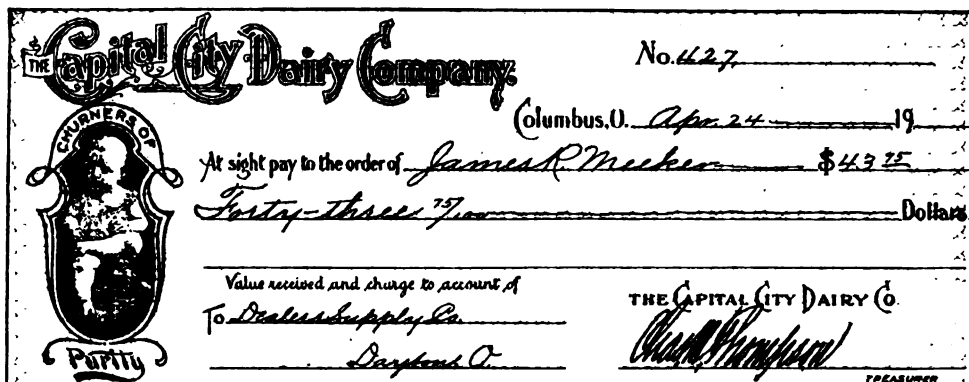 THE Capital City Dairy Company.
No. 1127
CHURNERS OF
Columbus, O. Apr. 24 19
At sight pay to the order of James R. Meeker $43 75
Forty-three 75/100 Dollars
Value received and charge to account of
To Dealers Supply Co.
O.
THE CAPITAL CITY DAIRY CO.
Chas. Thompson
TREASURER
Purity